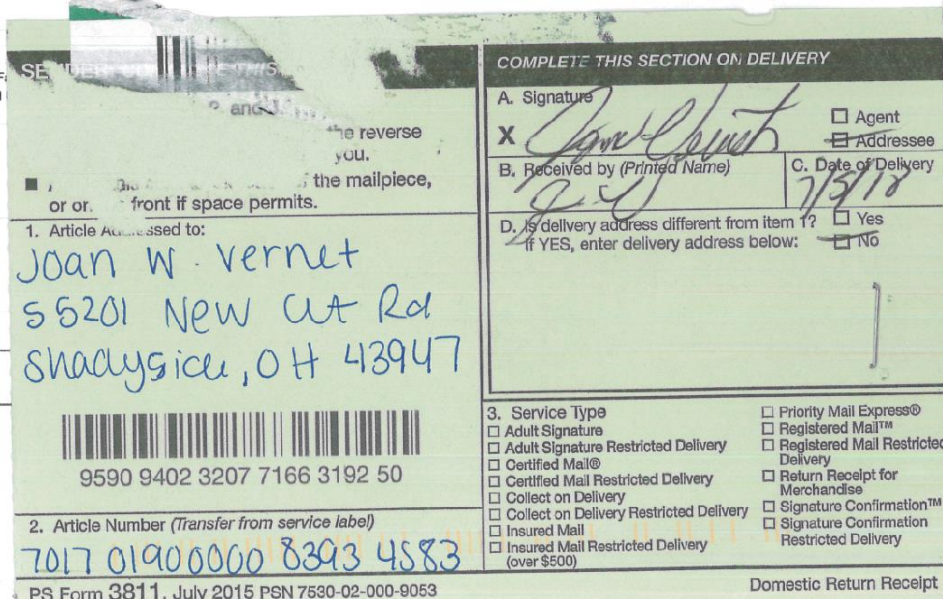 SENDER: THIS
and
the reverse
you.
■ the mailpiece,
or front if space permits.
1. Article Addressed to:
Joan W. Vernet
55201 New Cut Rd
Shadyside, OH 43947
9590 9402 3207 7166 3192 50
2. Article Number (Transfer from service label)
7017 01900000 8393 4583
PS Form 3811, July 2015 PSN 7530-02-000-9053
COMPLETE THIS SECTION ON DELIVERY
A. Signature
X
☐ Agent
☐ Addressee
B. Received by (Printed Name)
C. Date of Delivery
7/5/18
D. Is delivery address different from item 1? ☐ Yes
If YES, enter delivery address below: ☐ No
3. Service Type
☐ Adult Signature
☐ Adult Signature Restricted Delivery
☐ Certified Mail®
☐ Certified Mail Restricted Delivery
☐ Collect on Delivery
☐ Collect on Delivery Restricted Delivery
☐ Insured Mail
☐ Insured Mail Restricted Delivery
(over $500)
☐ Priority Mail Express®
☐ Registered Mail™
☐ Registered Mail Restricted
Delivery
☐ Return Receipt for
Merchandise
☐ Signature Confirmation™
☐ Signature Confirmation
Restricted Delivery
Domestic Return Receipt